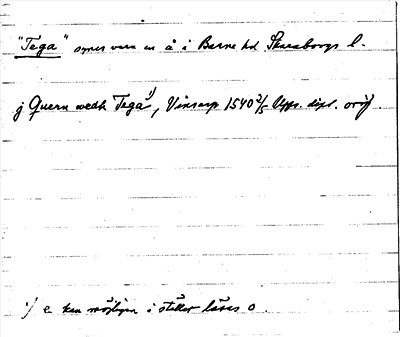 "Tega" synes vara en å i Barne hd Skaraborgs l.
j Quern wedh Tegå¹⁾, Vinsarp 1540 2/5 Upps. dipl. orig.
¹⁾ e kan möjligen i stället läsas o.